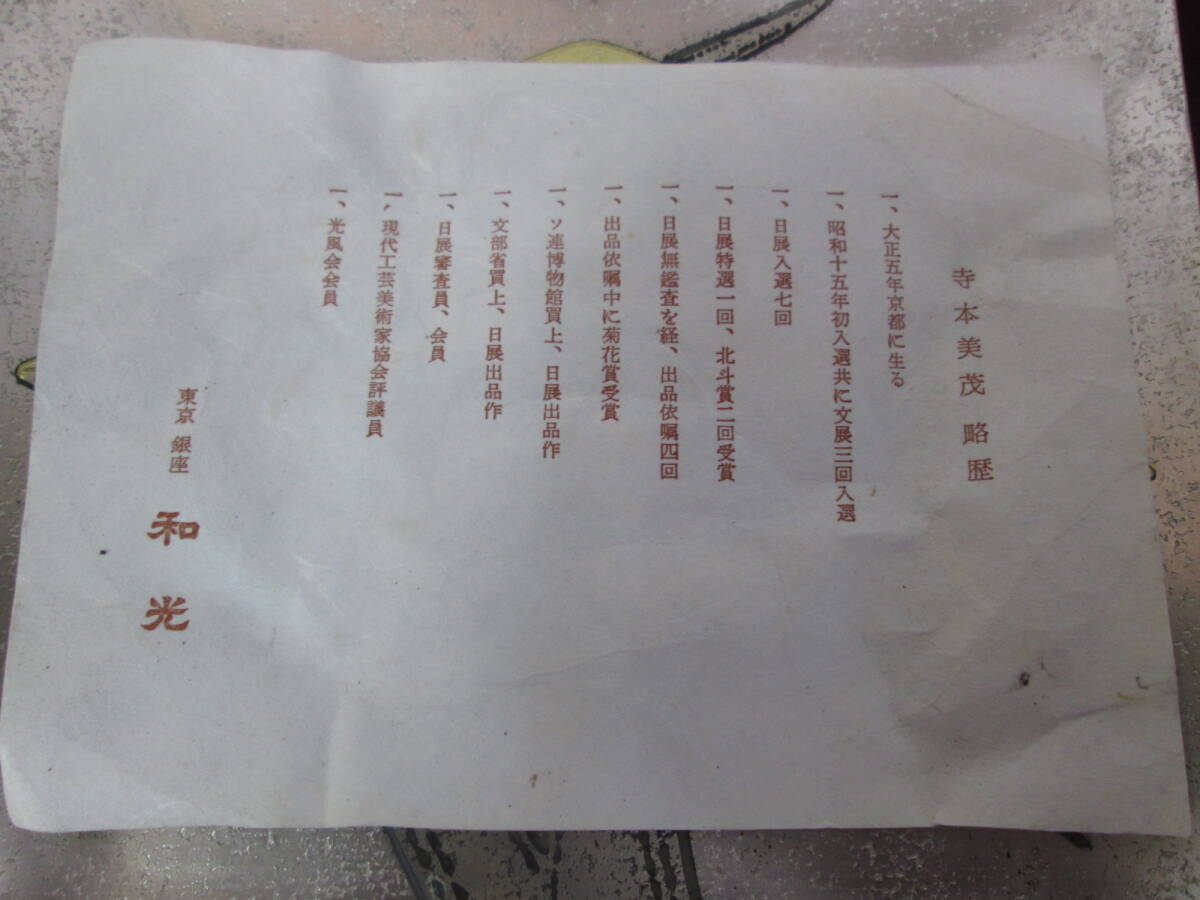 寺本美茂 略歴
一、大正五年京都に生る
一、昭和十五年初入選共に文展三回入選
一、日展入選七回
一、日展特選一回、北斗賞二回受賞
一、日展無鑑査を経、出品依嘱四回
一、出品依嘱中に菊花賞受賞
一、ソ連博物館買上、日展出品作
一、文部省買上、日展出品作
一、日展審査員、会員
一、現代工芸美術家協会評議員
一、光風会会員
東京 銀座 和光